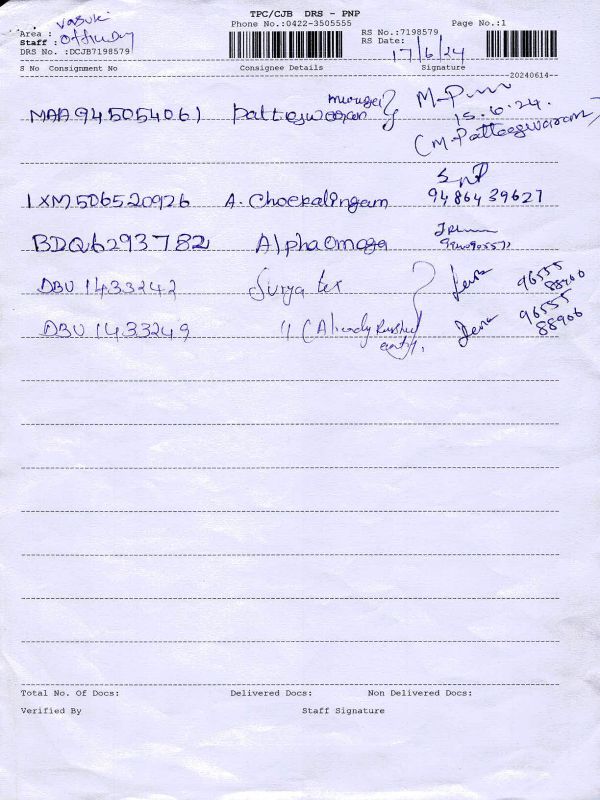 TPC/CJB DRS - PNP
Phone No.:0422-3505555 Page No.:1
Vasuki
Area : RS No.:7198579
Staff : RS Date: 17/6/24
DRS No. :DCJB7198579
S No Consignment No Consignee Details Signature
20240614
MAA945054061 Patteeswaran M-P
15.6.24.
(M.Patteeswaran)
1XM506520926 A. Chockalingam 9486439627
BDQ6293782 Alphaomega
DBU 1433242 Surya tex 96555 88900
DBU 1433249 " (Already Rushed entry. 96555 88906
Total No. Of Docs: Delivered Docs: Non Delivered Docs:
Verified By Staff Signature